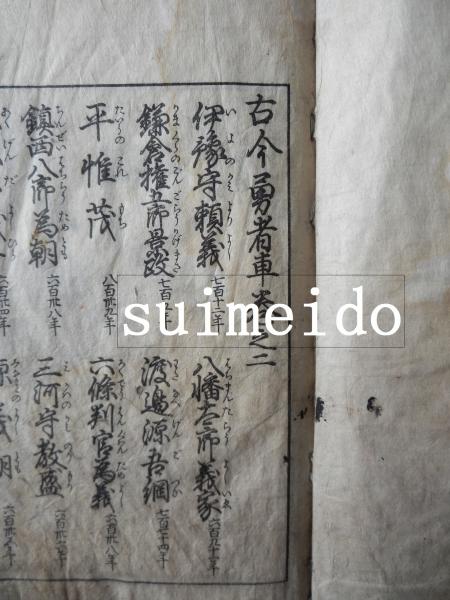 古今勇者車巻之二
伊豫守頼義
いよのかみよりよし
七百十二年
八幡太郎義家
はちまんたらうよしいゑ
六百九十二年
鎌倉権五郎景政
かまくらのごんごらうかげまさ
渡邉源吾綱
わたなべげんごつな
七百二十四年
平惟茂
たいらのこれもち
八百卅九年
六條判官為義
ろくでうはんぐわんためよし
六百卅八年
鎮西八郎為朝
ちんぜいはちらうためとも
六百卅八年
三河守教盛
みかはのかみのりもり
六百卅四年
suimeido